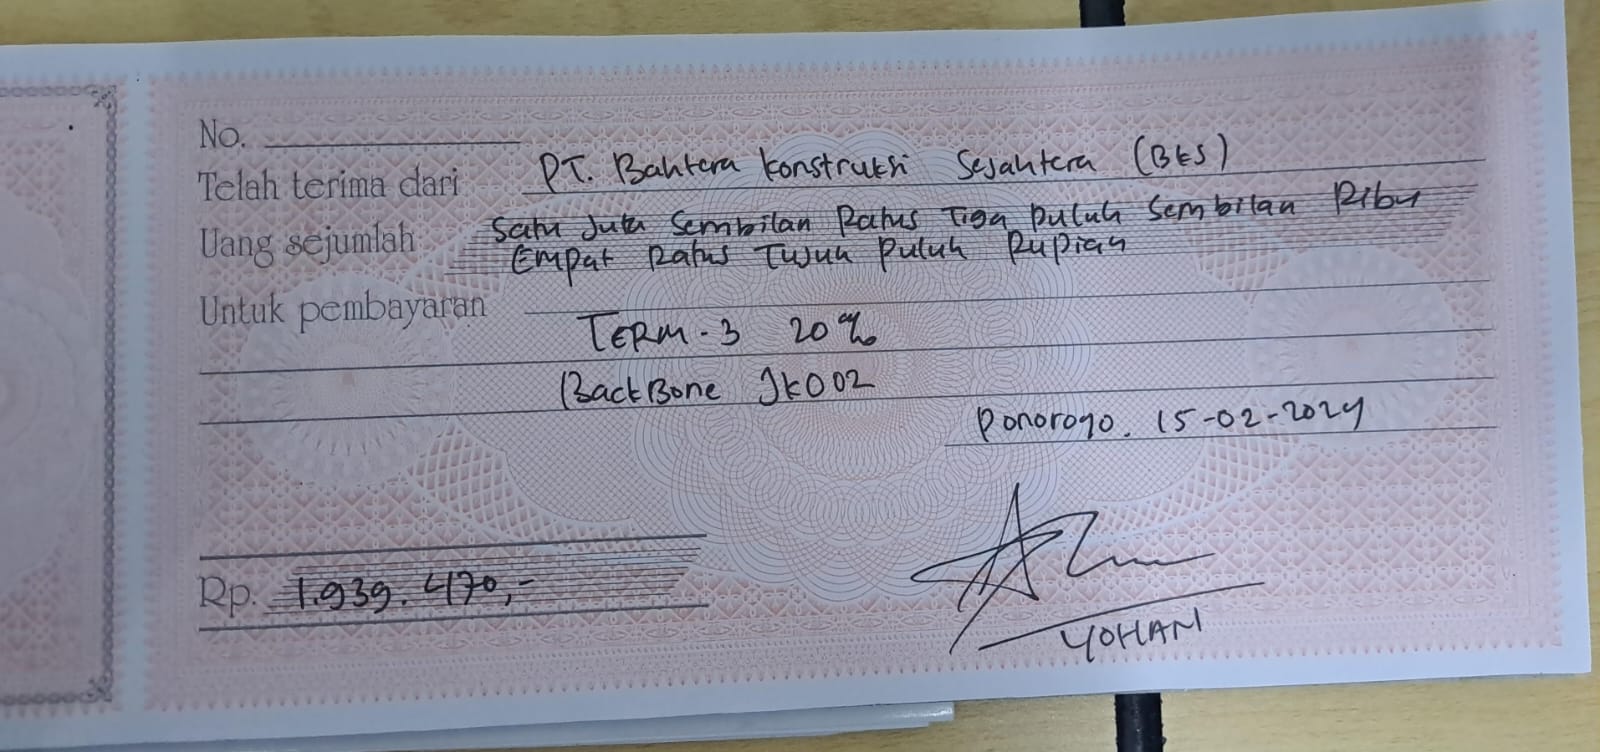 No.
Telah terima dari PT. Bahtera Konstruksi Sejahtera (BKS)
Uang sejumlah Satu Juta Sembilan Ratus Tiga Puluh Sembilan Ribu
Empat Ratus Tujuh Puluh Rupiah
Untuk pembayaran
TERM-3 20%
BackBone JK002
Ponorogo, 15-02-2024
Rp. 1.939.470,-
YOHAN